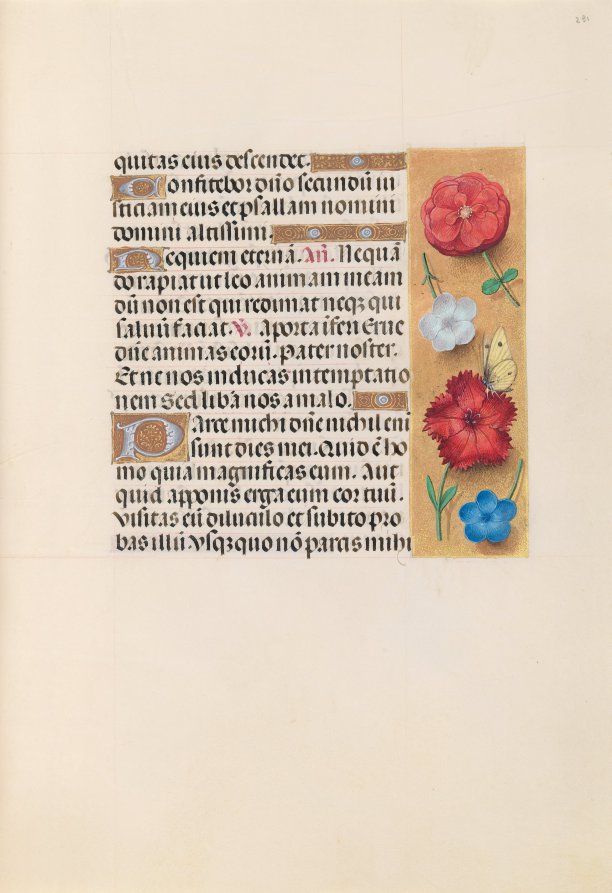 281
quitas eius descendet.
Confitebor dño secundũ iu
sticiam eius et psallam nomini
domini altissimi
Requiem eternã. Añ. Nequã
do rapiat ut leo animam meam
dũ non est qui redimat neqz qui
saluũ faciat. V̸. A porta iferi Erue
dñe animas eorũ. Pater noster.
Et ne nos inducas in temptatio
nem Sed liba nos a malo.
Parce michi dñe nichil eni
sunt dies mei. Quid ẽ ho
mo quia magnificas eum. Aut
quid apponis erga eum cor tuũ.
Visitas eũ diluculo et subito pro
bas illũ. Vsqzquo nõ parcis mihi